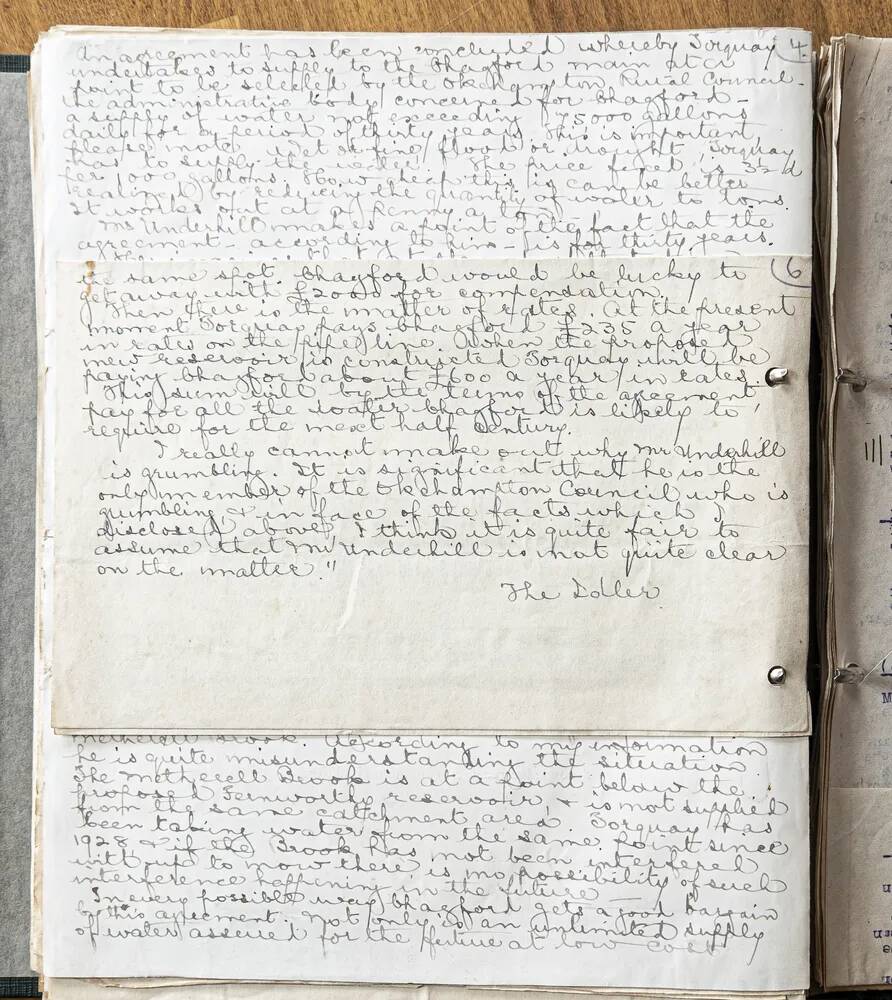 An agreement has been concluded whereby Torquay (4.
undertakes to supply to the Chagford main at a
point to be selected by the Okehampton Rural Council -
the administrative body concerned for Chagford -
a supply of water not exceeding 75000 gallons
daily for a period of thirty years. This is important
please note. Wet or fine, flood or drought Torquay
has to supply the water. The price fixed is 3½d
per 1000 gallons. How cheap this is can be better
realised by reducing the quantity of water to tons.
It works out at a penny a ton.
Mr Underhill makes a point of the fact that the
agreement - according to him - is for thirty years.
the same spot. Chagford would be lucky to (6
get away with £2000 for compensation.
Then there is the matter of rates. At the present
moment Torquay pays Chagford £235 a year
in rates on the pipe line. When the proposed
new reservoir is constructed Torquay will be
paying Chagford about £600 a year in rates.
This sum will by the terms of the agreement
pay for all the water Chagford is likely to
require for the next half century.
I really cannot make out why Mr Underhill
is grumbling. It is significant that he is the
only member of the Okehampton Council who is
grumbling & in face of the facts which I
disclosed above, I think it is quite fair to
assume that Mr Underhill is not quite clear
on the matter."
The Doller
Brook. According to my information
he is quite misunderstanding the situation
The Metherell Brook is at a point below the
proposed Fernworthy reservoir & is not supplied
from the same catchment area. Torquay has
been taking water from the same point since
1928 & if the Brook has not been interfered
with up to now there is no possibility of such
interference happening in the future
In every possible way Chagford gets a good bargain
by this agreement. Not only is an unlimited supply
of water assured for the future at low cost